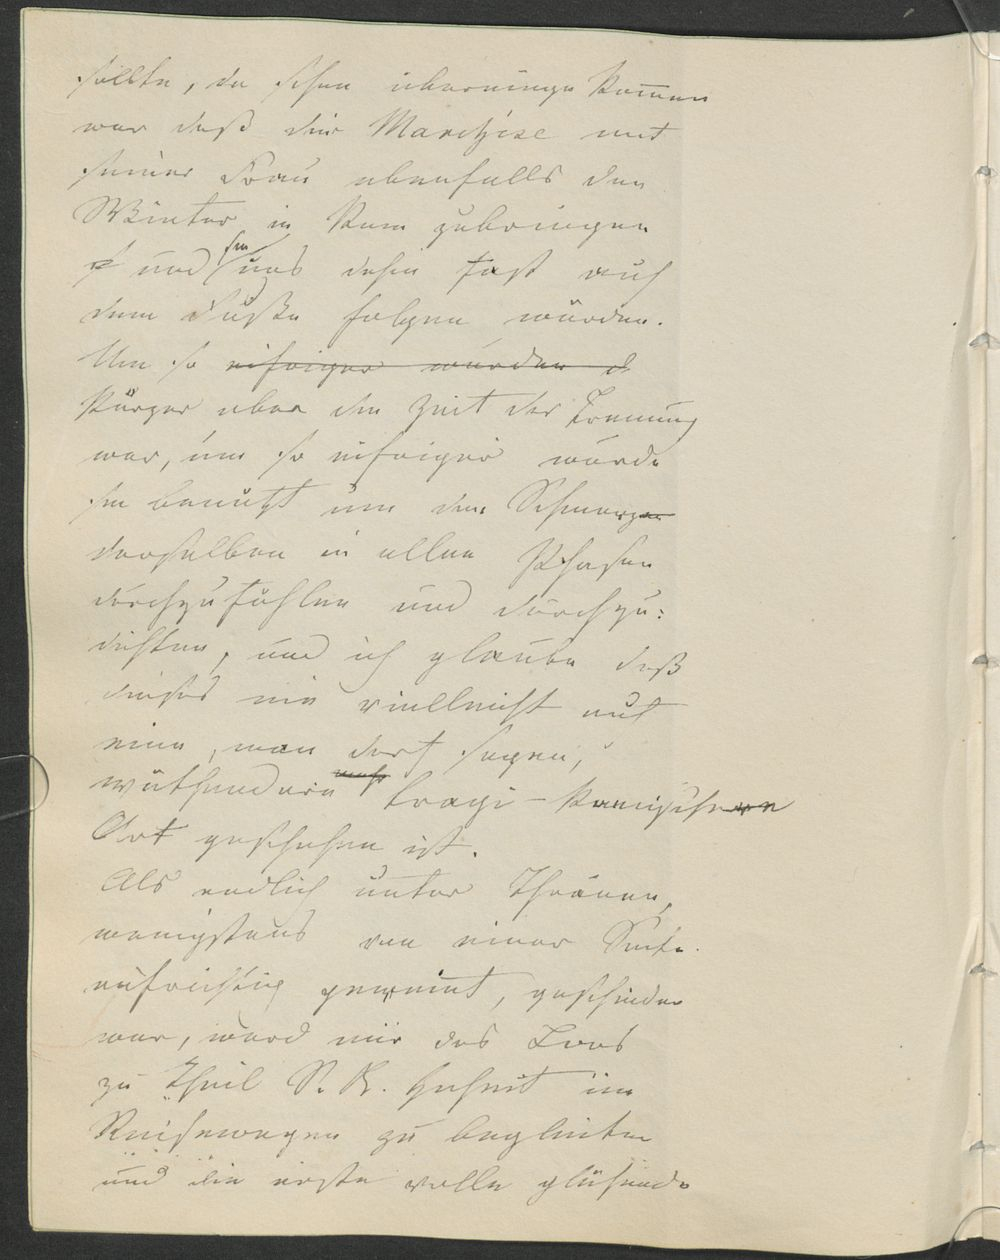 sollte, da schon übereingekom̅en
war daß die Marchese mit
seiner Frau ebenfalls den
Winter in Rom zubringen
und sie uns dahin fast auf
dem Fuße folgen würden.
Um so eifriger wurden d
kürzer aber die Zeit der Trennung
war, um so eifriger wurde
sie benutzt um den Schmerzen
derselben in allen Phasen
durchzufühlen und durchzu:
dichten, und ich glaube daß
dieses nie vielleicht auf
eine, man darf sagen,
wüthendere tragi-komischere
Art geschehen ist.
Als endlich unter Thränen,
wenigstens von einer Seite
aufrichtig geweint, geschieden
war, ward mir das Loos
zu Theil S. K. Hoheit im
Reisewagen zu begleiten
und die erste volle glühende